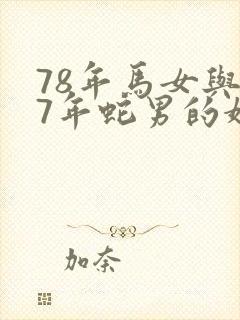 78年馬女與
7年蛇男的
加奈